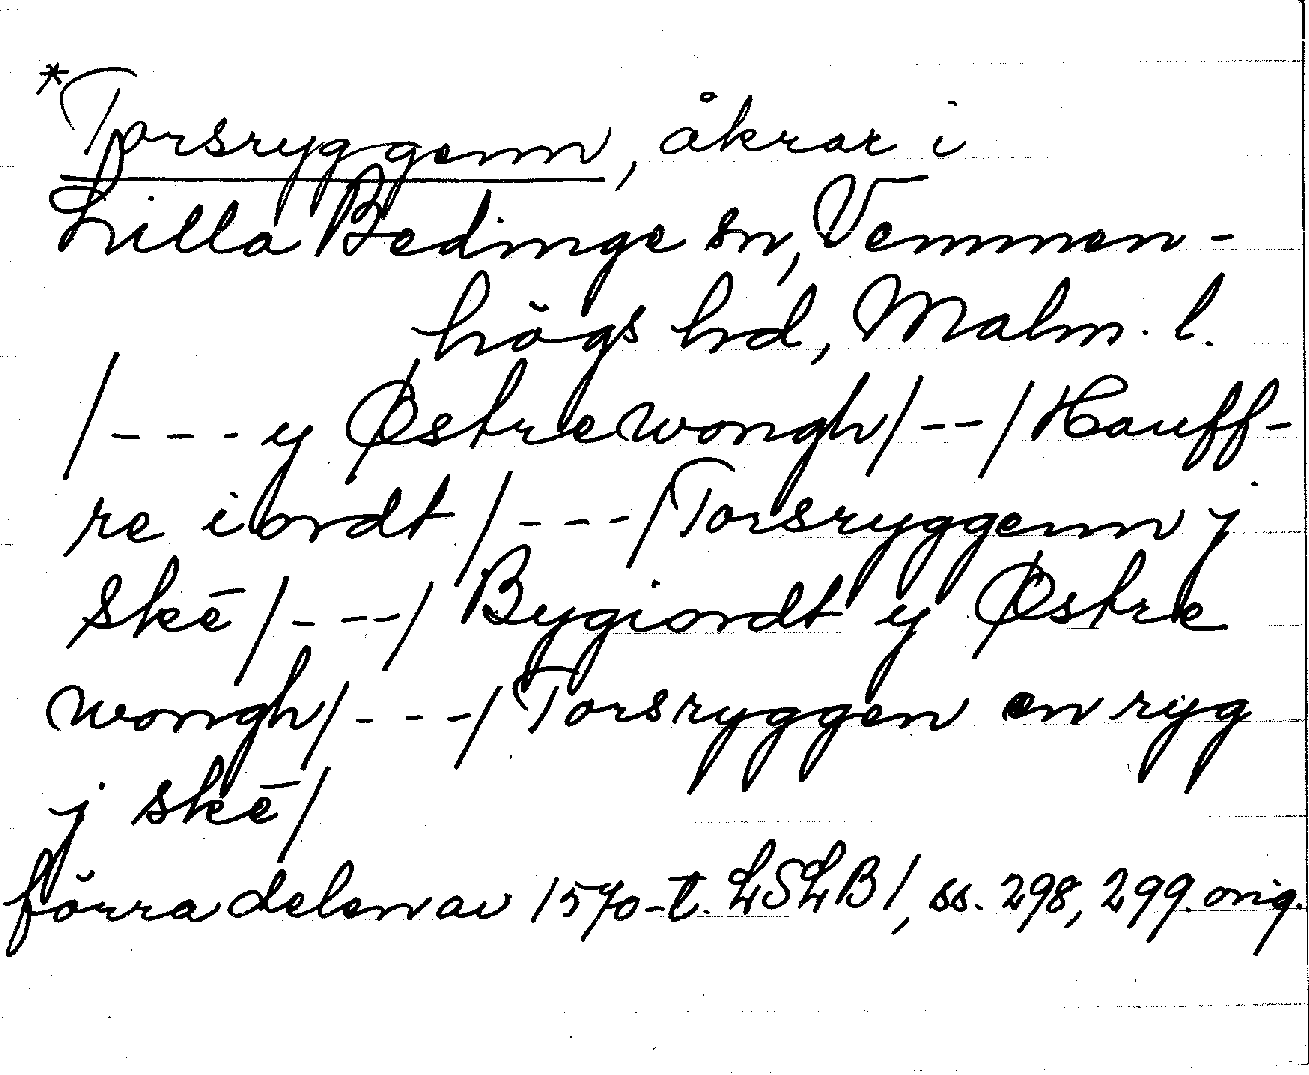 *Torsryggenn, åkrar i
Lilla Bedinge sn, Vemmen-
högs hd, Malm. l.
/---y Østrewongh/--/Hauff-
re iordt/---/Torsryggenn j
skē/---/Bygiordt y Østre
wongh/---/Torsryggen en ryg
j skē/
förra delen av 1570-t. LSLB1, ss. 298, 299. orig.